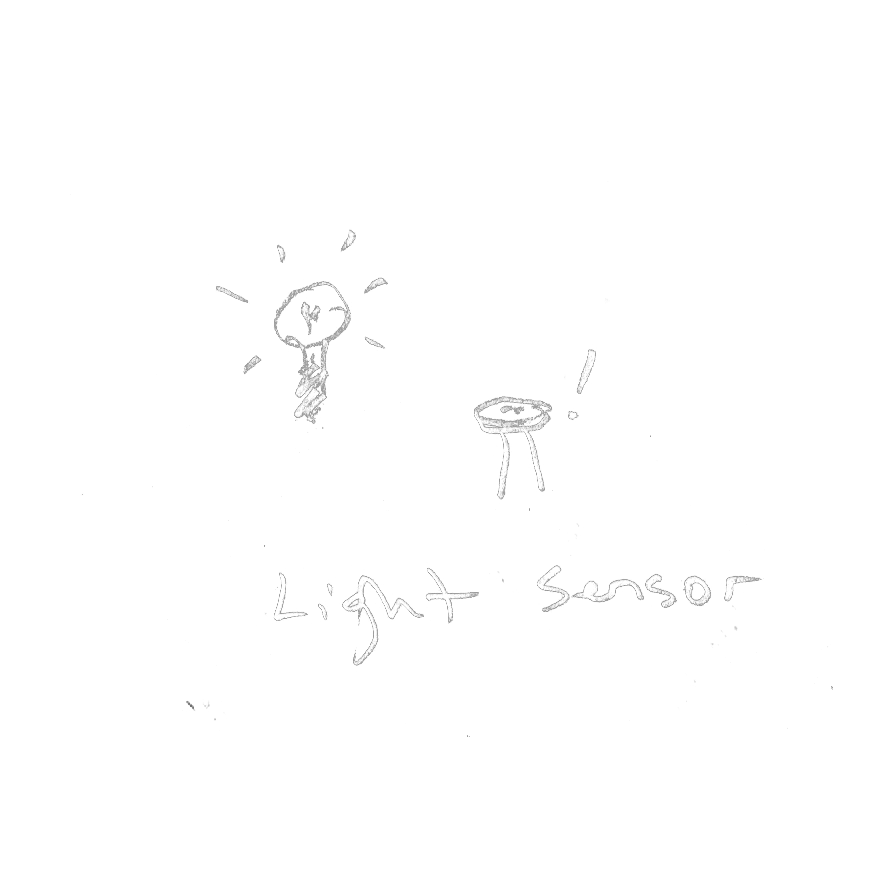 Light sensor